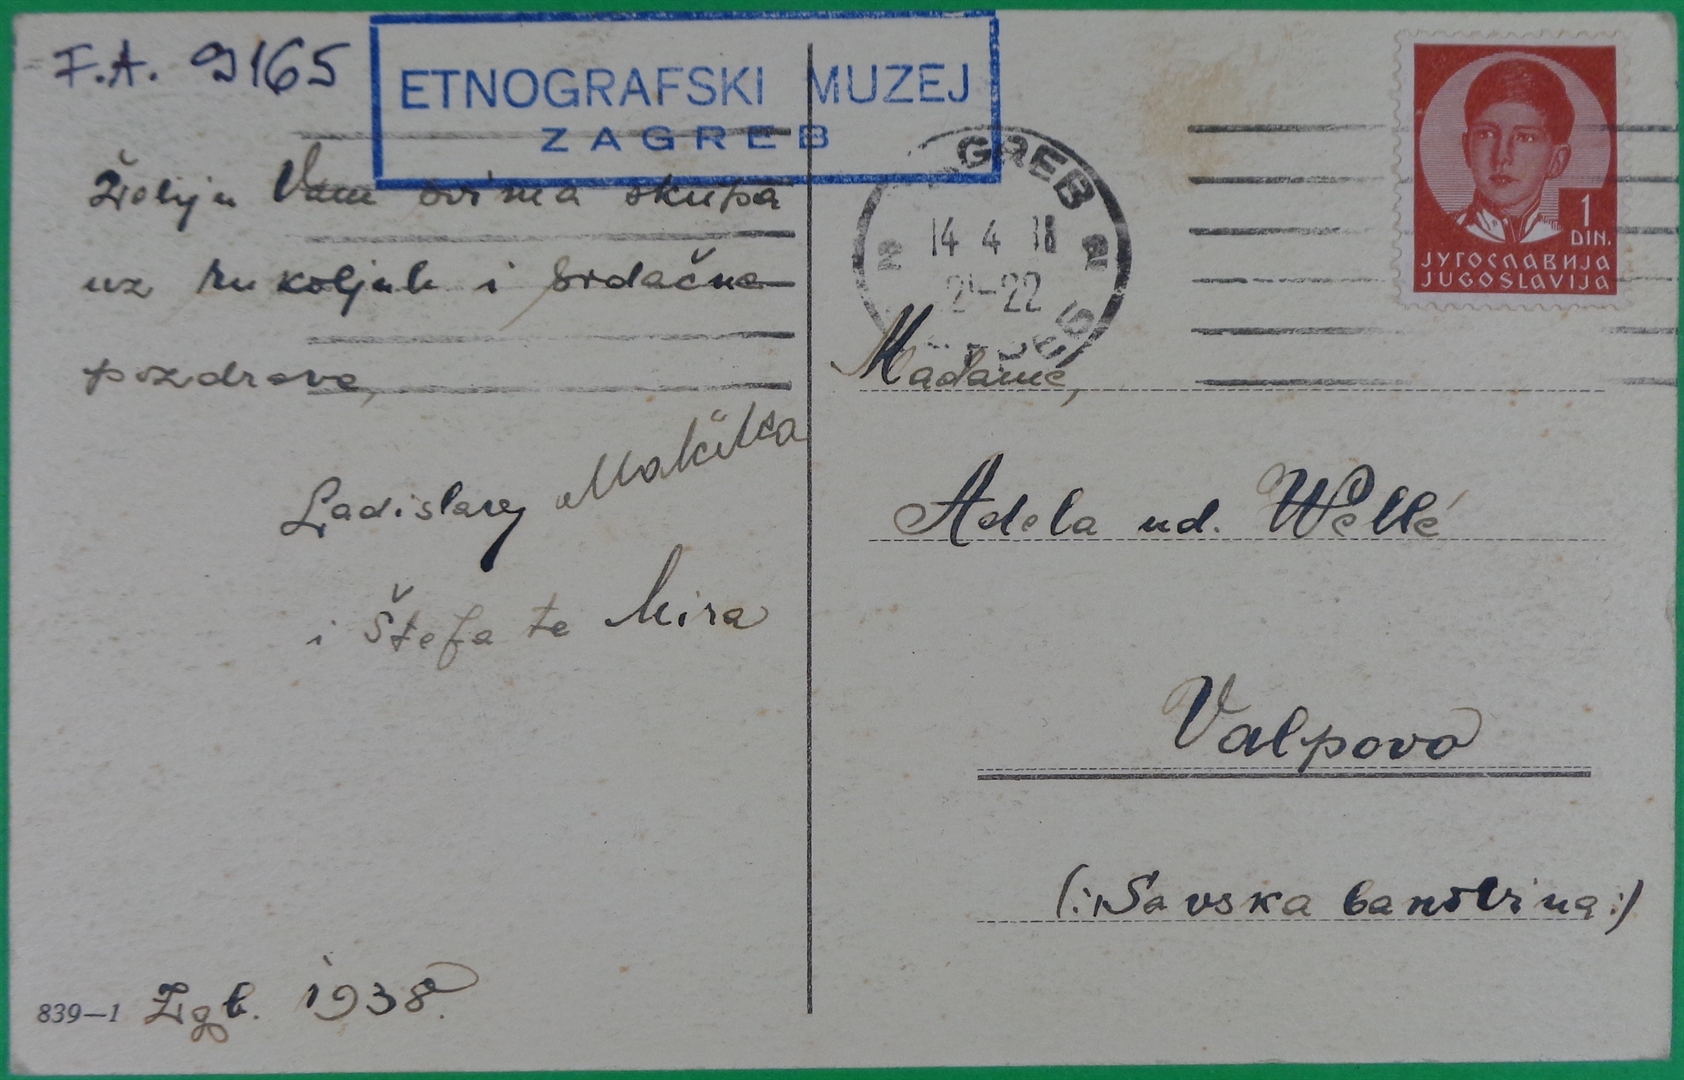 F.A. 9165
ETNOGRAFSKI MUZEJ
ZAGREB
Vam svima skupa
uz rukoljub i srdačne
pozdrave,
Ladislav
i Štefa te Mira
839–1 Zgb. 1938.
GREB
14 4
21–22
1
DIN.
ЈУГОСЛАВИЈА
JUGOSLAVIJA
Madame,
Adela ud. Wellé
Valpovo
(:Savska banovina:)